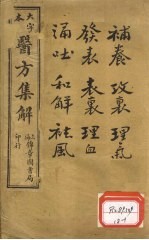 補養 攻裏 理氣
發表 表裏 理血
涌吐 和解 祛風
大字
本
醫方集解
上海錦章圖書局
印行